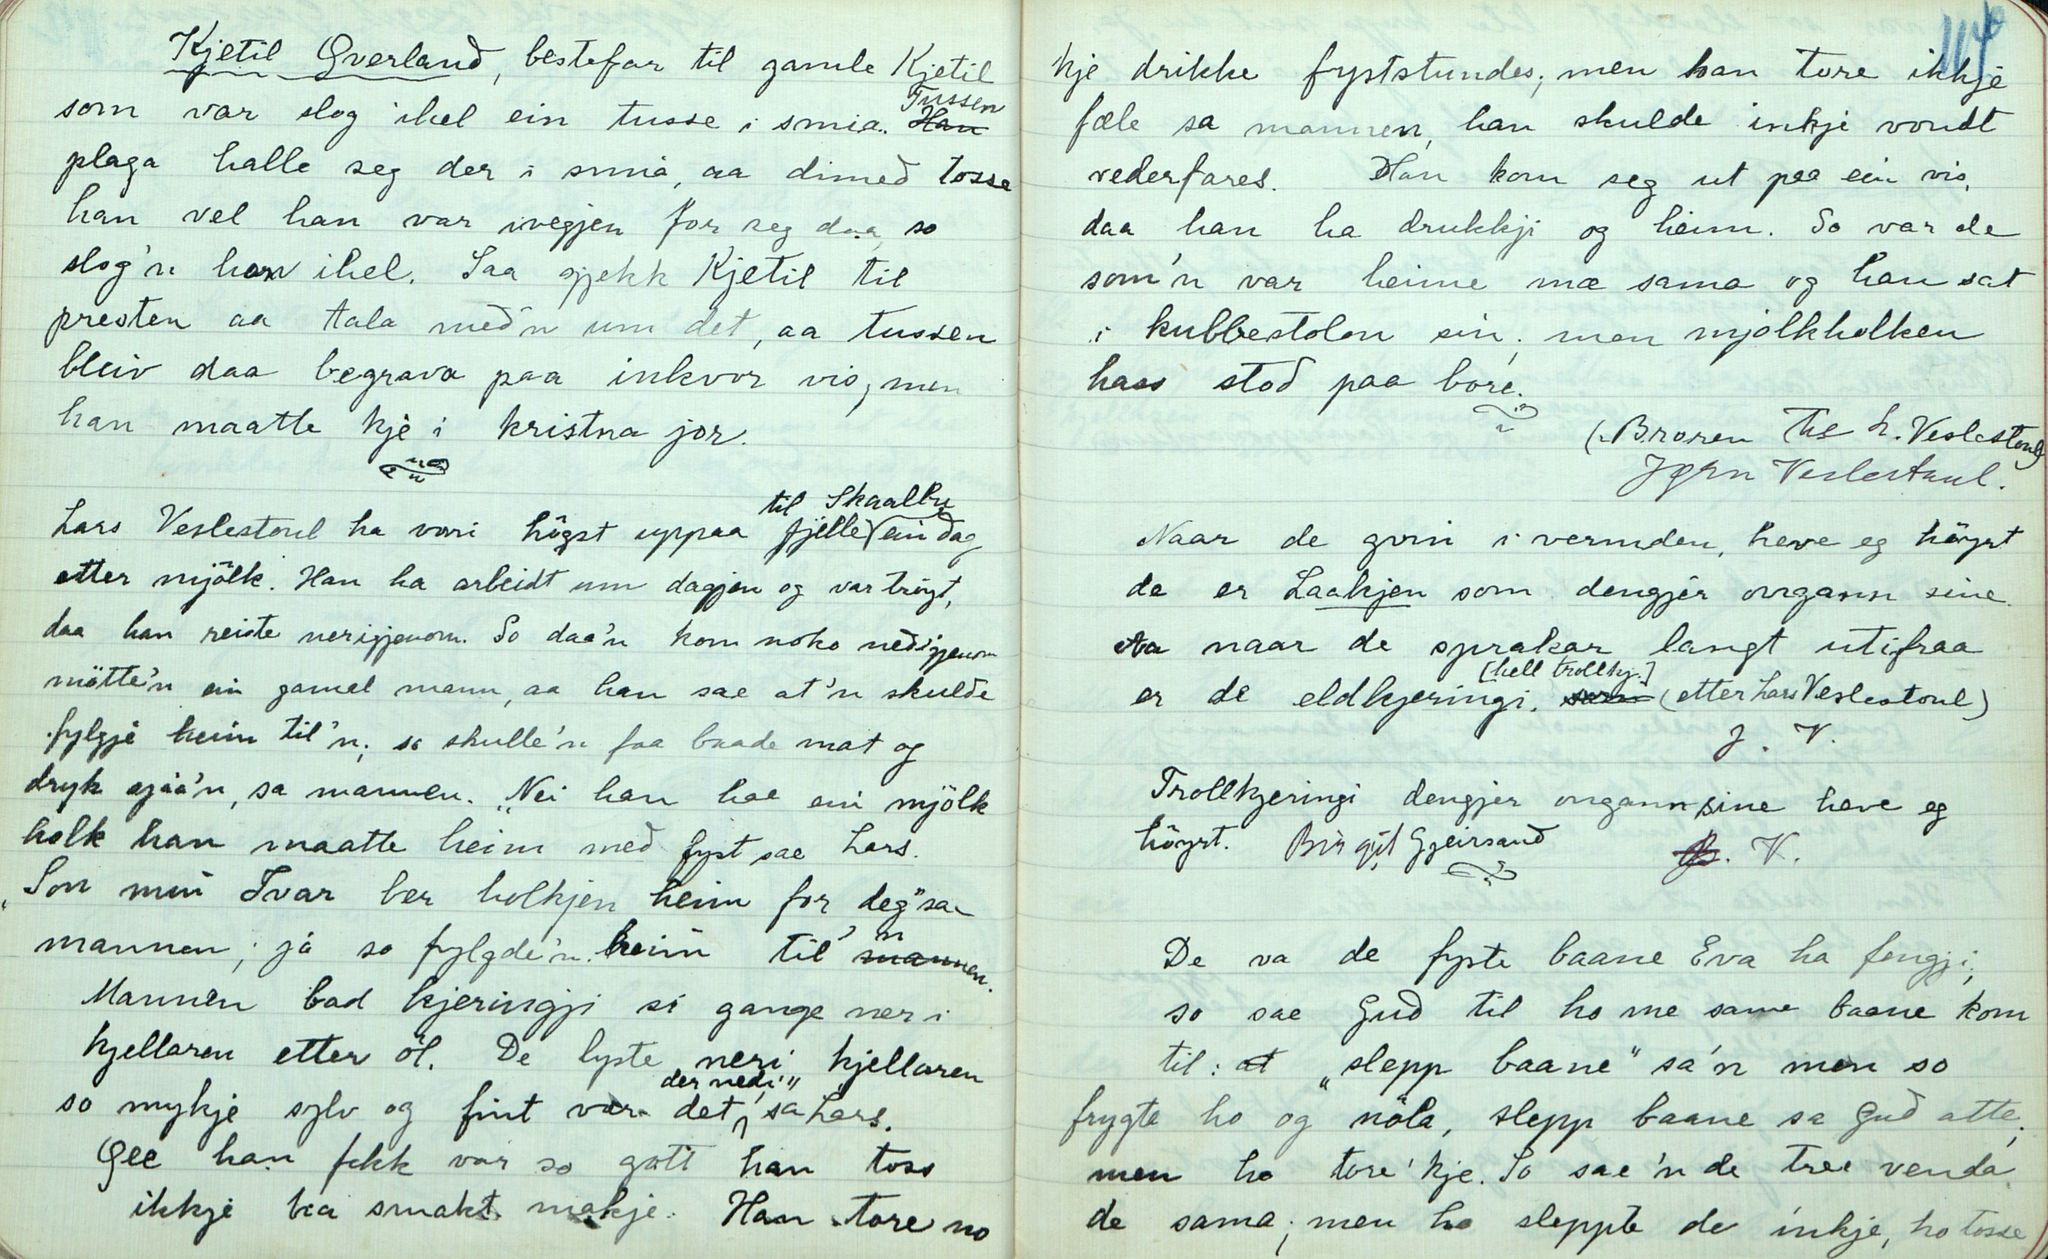 Kjetil Qverland, bestefar til gamle Kjetil
som var slog ihel ein tusse i smia. Tussen
Han
plaga halle seg der i smia, aa dimed tosse
han vel han var ivegjen for seg daa, so
slog'n han ihel. Saa gjekk Kjetil til
presten aa tala med'n um det, aa tussen
bleiv daa begrava paa inkvor vis, men
han maatte kje i kristna jor.
til Skaalbu
Lars Veslestoul ha vori högst uppaa fjelle ein dag
etter mjölk. Han ha arbeidt um dagjen og var tröyt,
daa han reiste nerigjenom. So daa'n kom noko nedigjenom
mötte'n ein gamal mann, aa han sae at'n skulde
fylgje heim til'n, so skulle'n faa baade mat og
dryk sjaa'n, sa mannen. "Nei han hae ein mjölk
holk han maatte heim med fyst sae Lars.
"Son min Ivar ber holkjen heim for deg" sa
mannen; ja so fylgde'n heim til 'n
mannen.
Mannen bad kjeringji si gange ner i
kjellaren etter öl. De lyste neri kjellaren
so mykje sylv og fint var det der nedi", sa Lars.
Öee han fekk var so gott han toss
ikkje ha smakt makje. Han tore no
114
kje drikke fyststundes; men han tore ikkje
fæle sa mannen, han skulde inkje vondt
vederfares. Han kom seg ut paa ein vis,
daa han ha drukkji og heim. So var de
som'n var heime mæ sama og han sat
i kubbestolen sin; men mjolkholken
hass stod paa bore.
(Broren Th. L. Veslestoul)
Jørn Veslestaul.
Naar de gvin i vermden, heve eg höyrt
de er Laakjen som dengjer ongann sine.
Aa naar de sprakar langt utifraa
er de eldkjeringi. [hell trollkj.] (etter Lars Veslestoul)
J. V.
Trollkjeringi dengjer ongann sine heve eg
höyrt. Birgit Gjeirsand
B. V.
De va de fyste baane Eva ha fengji;
so sae Gud til ho me same baane kom
til: at "slepp baane" sa'n men so
frygta ho og nöla, slepp baane sa Gud atte;
men ho tore'kje. So sae'n de tree venda
de sama; men ho sleppte de inkje, ho tosse